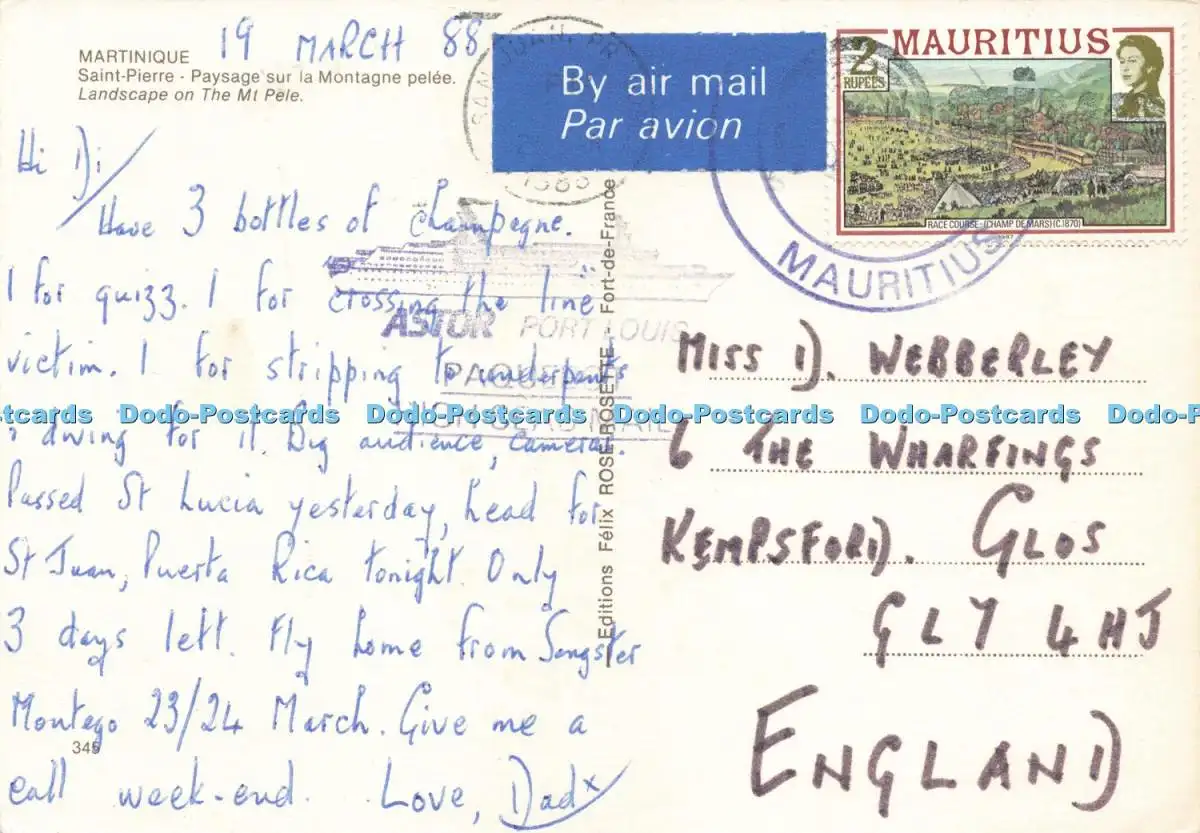 19 MARCH 88
MARTINIQUE
Saint-Pierre - Paysage sur la Montagne pelée.
Landscape on The Mt Pele.
SAN JUAN, PR
1988
By air mail
Par avion
MAURITIUS
2 RUPEES
RACE COURSE-(CHAMP DE MARS)(C.1870)
1987
MAURITIUS
Hi Di
Have 3 bottles of champagne.
1 for quizz. 1 for crossing the line
victim. 1 for stripping to underpants
& diving for it. Big audience, cameras.
Passed St Lucia yesterday, head for
St Juan, Puerta Rica tonight. Only
3 days left. Fly home from Sangster
Montego 23/24 March. Give me a
call week-end. Love, Dad x
345
ASTOR PORT LOUIS
PAQUEBOT
HIGH SEAS MAIL
Editions Félix ROSE-ROSETTE - Fort-de-France
MISS D. WEBBERLEY
6 THE WHARFINGS
KEMPSFORD. GLOS
GL7 4HJ
ENGLAND
Dodo-Postcards Dodo-Postcards Dodo-Postcards Dodo-Postcards Dodo-Postcards